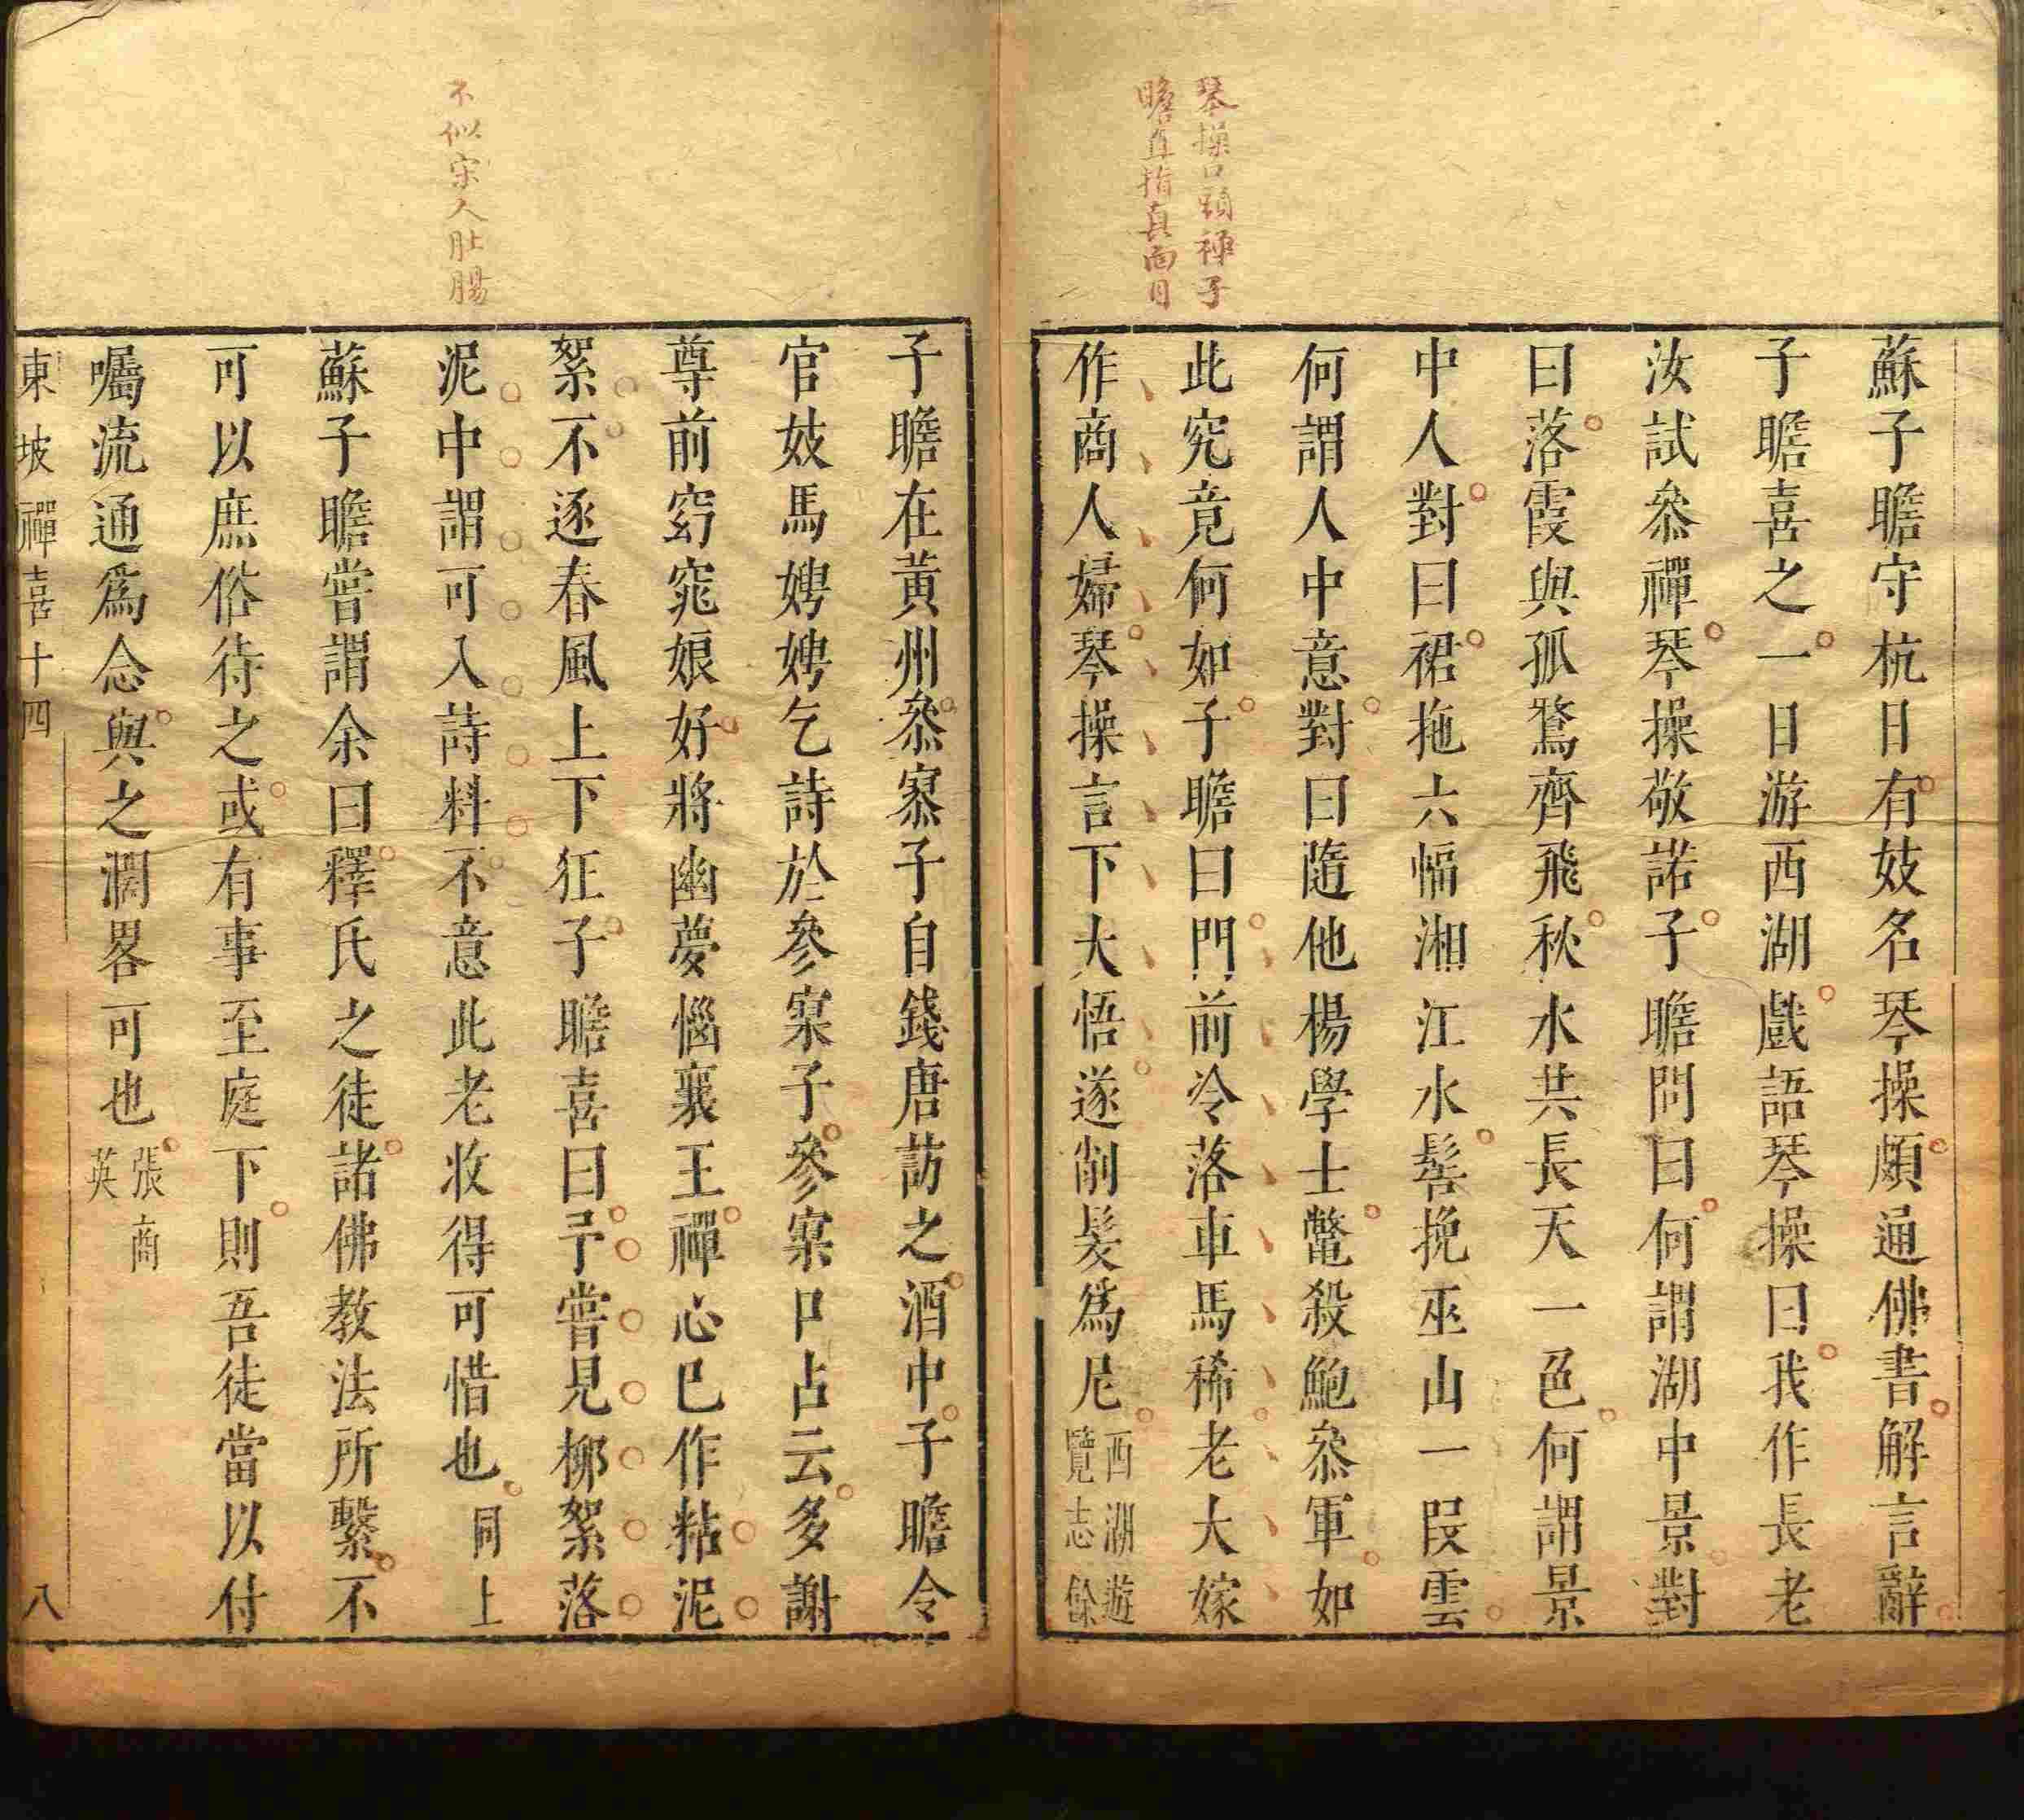 琴操口頭禪子
瞻直指真面目
蘇子瞻守杭日有妓名琴操頗通佛書解言辭
子瞻喜之一日游西湖戲語琴操曰我作長老
汝試叅禪琴操敬諾子瞻問曰何謂湖中景對
曰落霞與孤鶩齊飛秋水共長天一色何謂景
中人對曰裙拖六幅湘江水髻挽巫山一段雲
何謂人中意對曰隨他楊學士鱉殺鮑叅軍如
此究竟何如子瞻曰門前冷落車馬稀老大嫁
作商人婦琴操言下大悟遂削髮爲尼西湖遊
覽志餘
不似宋人肚腸
子瞻在黃州叅寥子自錢唐訪之酒中子瞻令
官妓馬娉娉乞詩於參寥子參寥口占云多謝
尊前窈窕娘好將幽夢惱襄王禪心已作粘泥
絮不逐春風上下狂子瞻喜曰予嘗見柳絮落
泥中謂可入詩料不意此老收得可惜也同上
蘇子瞻嘗謂余曰釋氏之徒諸佛教法所繫不
可以庶俗待之或有事至庭下則吾徒當以付
囑流通爲念與之濶畧可也張商
英
東坡禪喜十四 八